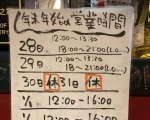 年末年始の営業時間
12:00〜13:30
28日. 18:00〜21:00(L.O...)
29日 12:00〜13:30
18:00〜21:00(L.O...)
30日 休 31日 休
1/1 12:00〜16:00
12:00〜16:00